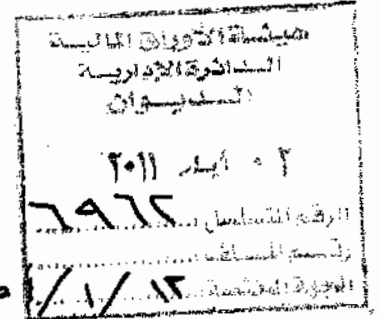 هيئة الأوراق المالية
الدائرة الإدارية
الديوان
٠٢ أيار ٢٠١١
الرقم المتسلسل ٦٩٦٢
رقم الملف
الجهة المختصة ١٢/١/